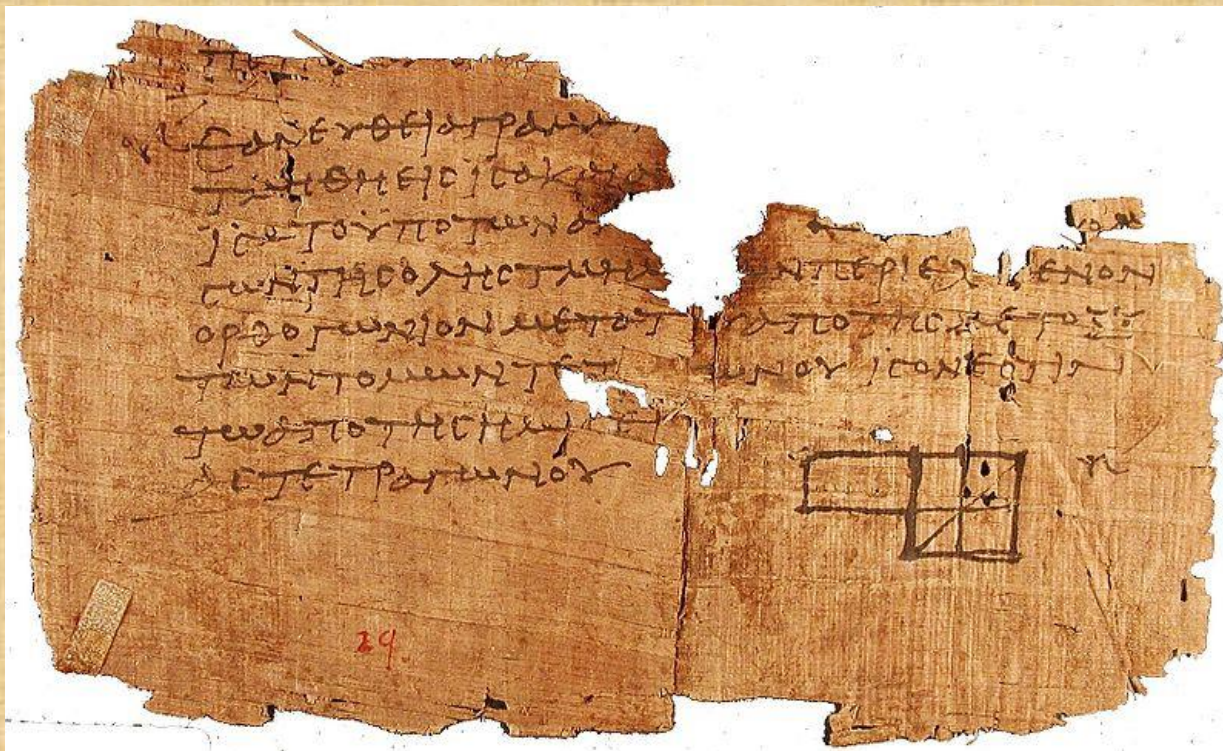 ΕΑΝΕΥΘΕΙΑΓΡΑΜ
ΤΜΗΘΗΕΙСΙСΑΚΑΙΑ
ΙСΑΤΟΥΠΟΤΩΝΑΝ
СΩΝΤΗСΟΛΗСΤΜΗΜ ΩΝΠΕΡΙΕΧ ΜΕΝΟΝ
ΟΡΘΟΓΩΝΙΟΝΜΕΤΑΤΟΥΑΠΟΤΗСΜΕΤΟΞΥ
ΤΩΝΤΟΜΩΝΤΕΤ ΩΝΟΥΙСΟΝΕСΤΙΝ
ΤΩΑΠΟΤΗСΗΜΙСΕΙ
ΑСΤΕΤΡΑΓΩΝΟΥ
29.